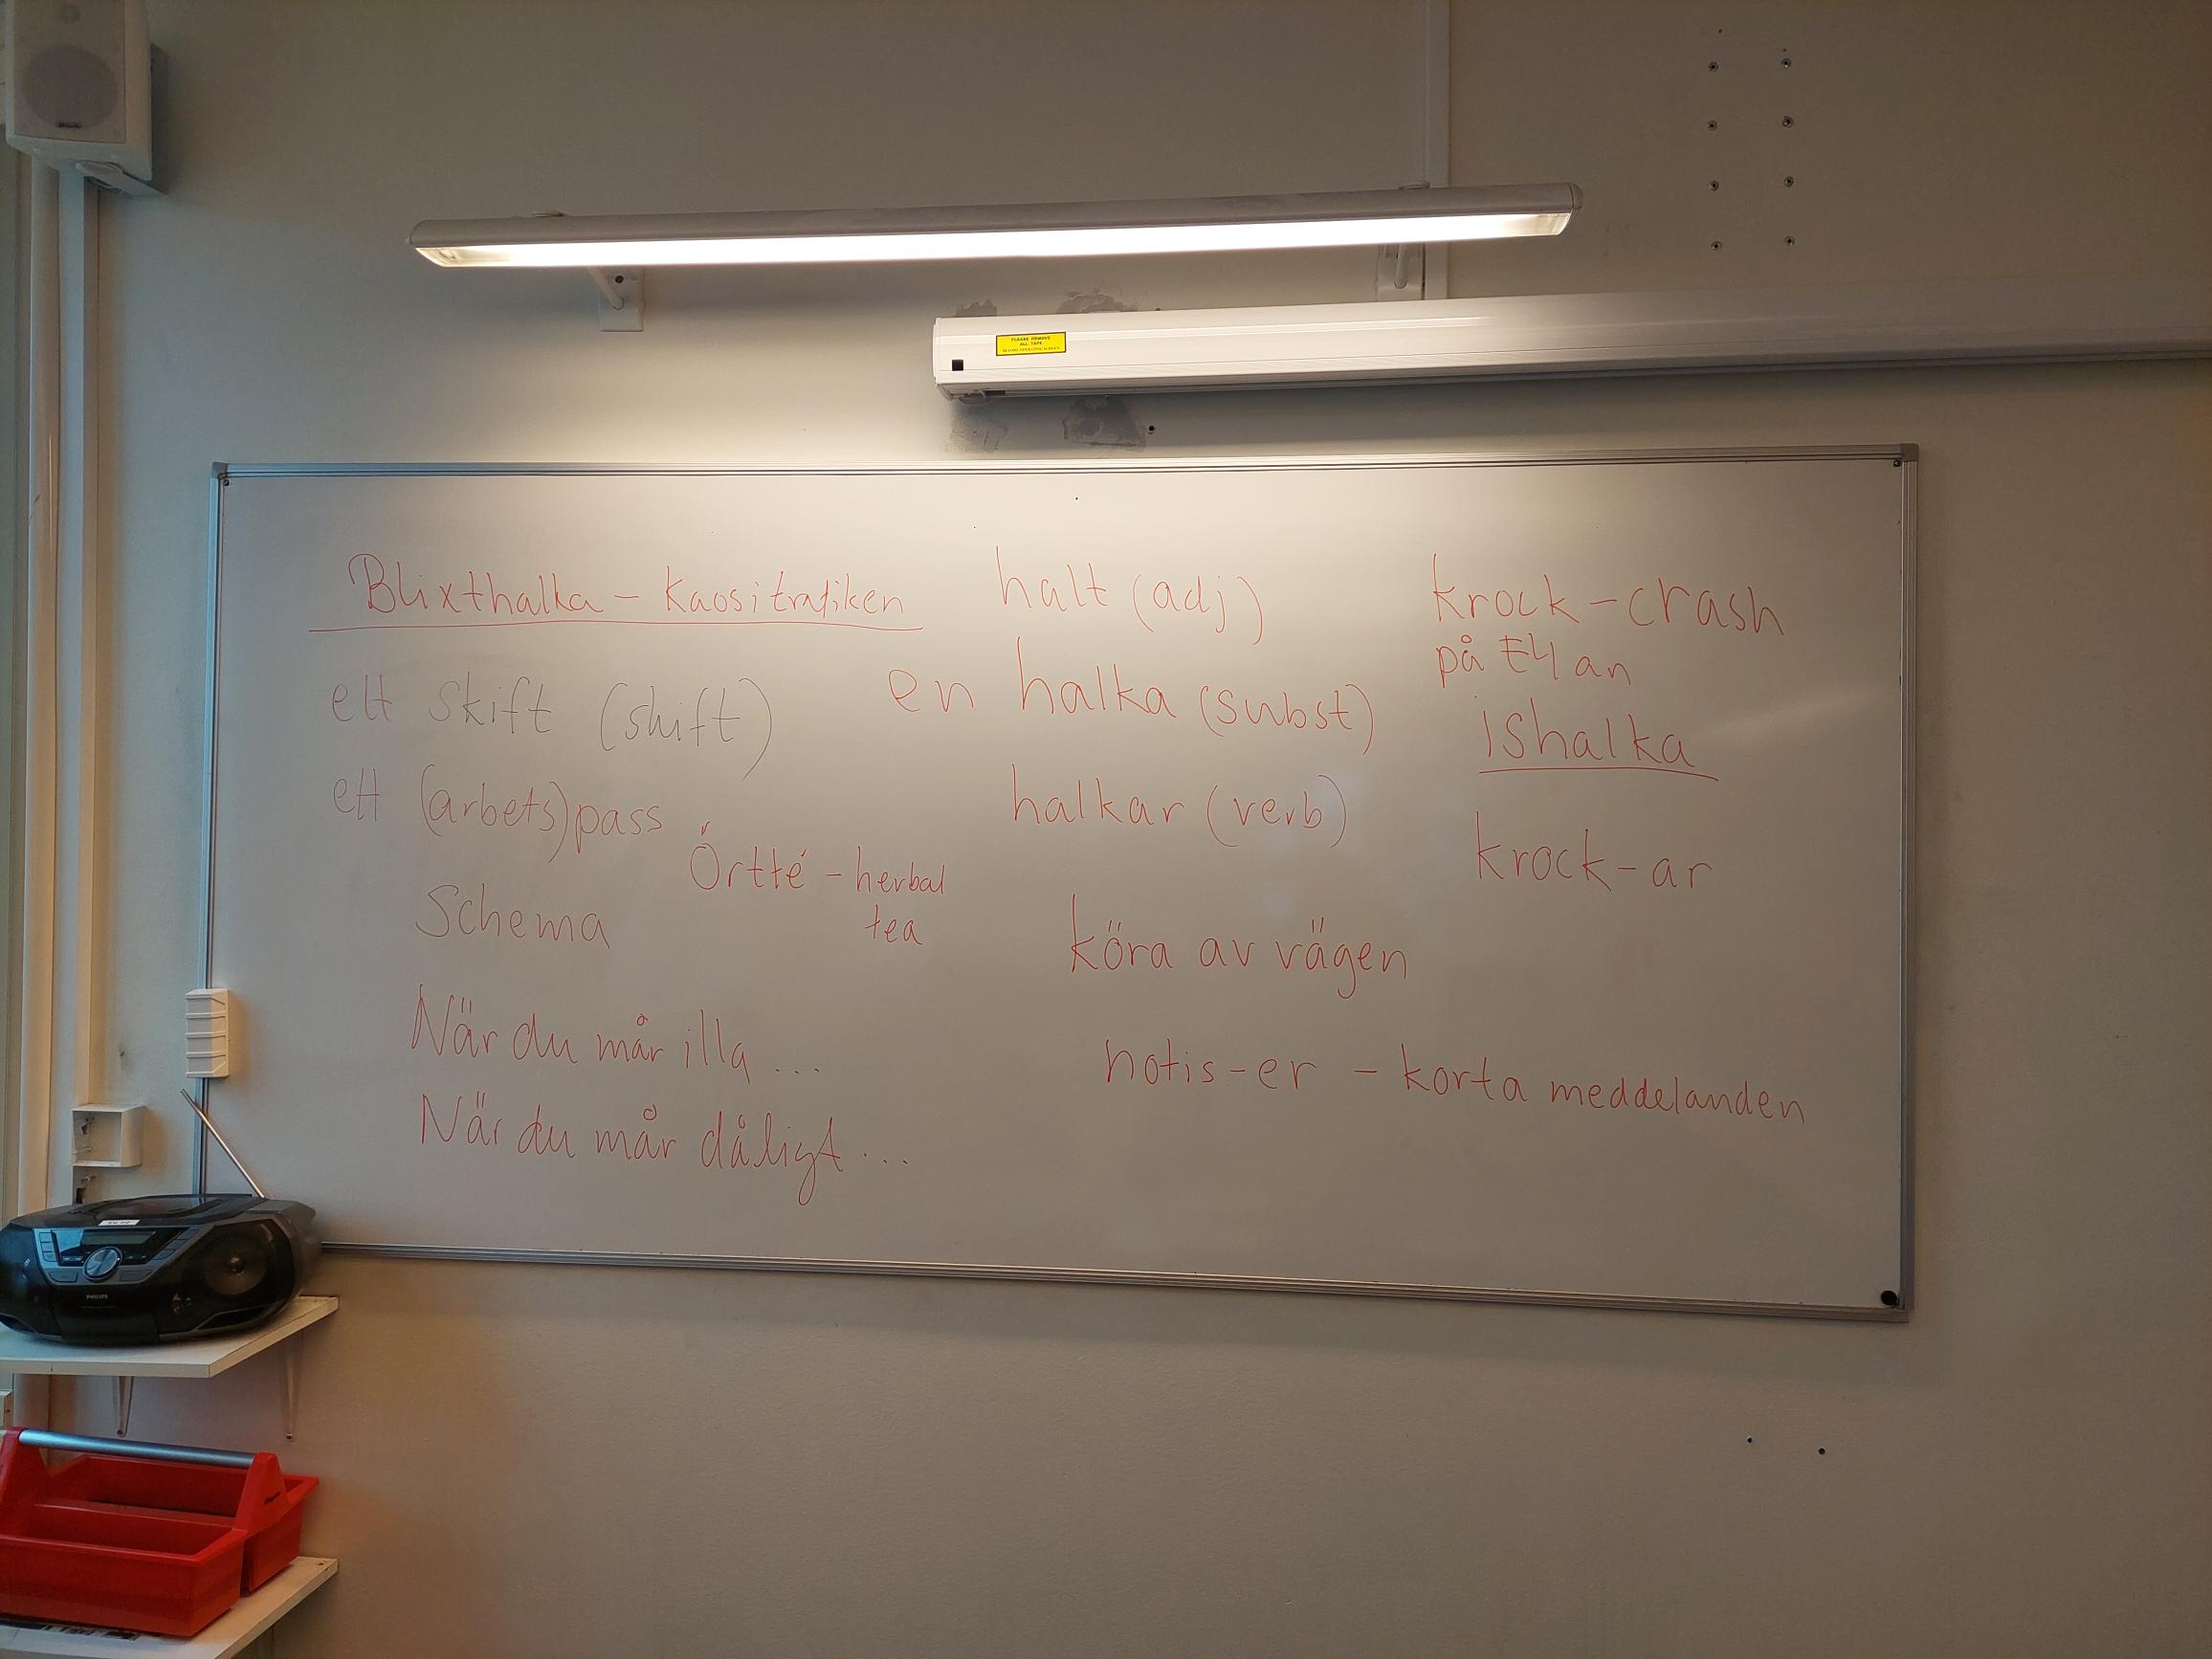 PLEASE REMOVE
ALL TAPE
Blixthalka – Kaos i trafiken
ett skift (shift)
ett (arbets)pass
Örtté – herbal
tea
Schema
När du mår illa ...
När du mår dåligt ...
halt (adj)
en halka (subst)
halkar (verb)
köra av vägen
notis-er – korta meddelanden
krock – crash
på E4 an
ishalka
krock-ar
PHILIPS